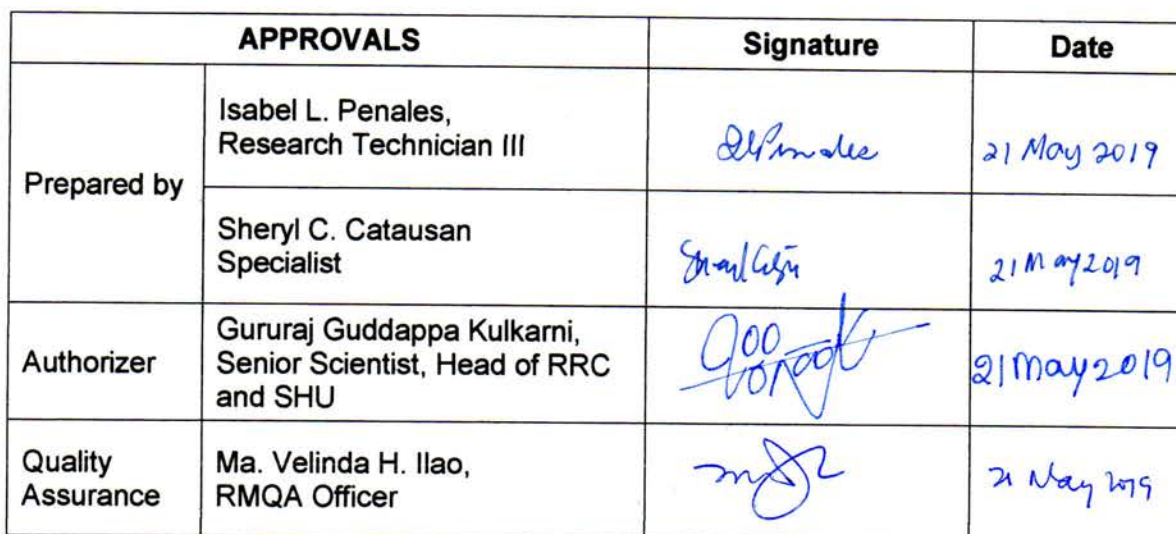 APPROVALS Signature Date
Prepared by
Isabel L. Penales,
Research Technician III
21 May 2019
Sheryl C. Catausan
Specialist
21 May 2019
Authorizer
Gururaj Guddappa Kulkarni,
Senior Scientist, Head of RRC
and SHU
21 May 2019
Quality
Assurance
Ma. Velinda H. Ilao,
RMQA Officer
21 May 2019